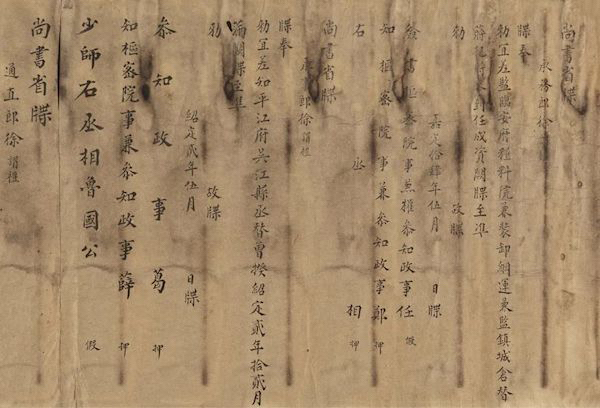 尚書省牒
承務郎徐謂禮
牒奉
勑宜差監臨安府糧料院兼裝卸綱運兼監鎮城倉替
到任成資闕牒至準
勑故牒
嘉定拾肆年伍月 日牒
僉書樞密院事兼權參知政事任 假
知樞密院事兼參知政事鄭 押
右丞相 押
尚書省牒
承事郎徐謂禮
牒奉
勑宜差知平江府吳江縣丞替曾揆紹定貳年拾貳月
滿闕牒至準
勑故牒
紹定貳年伍月 日牒
參知政事葛 押
知樞密院事兼參知政事薛 押
少師右丞相魯國公 假
尚書省牒
通直郎徐謂禮